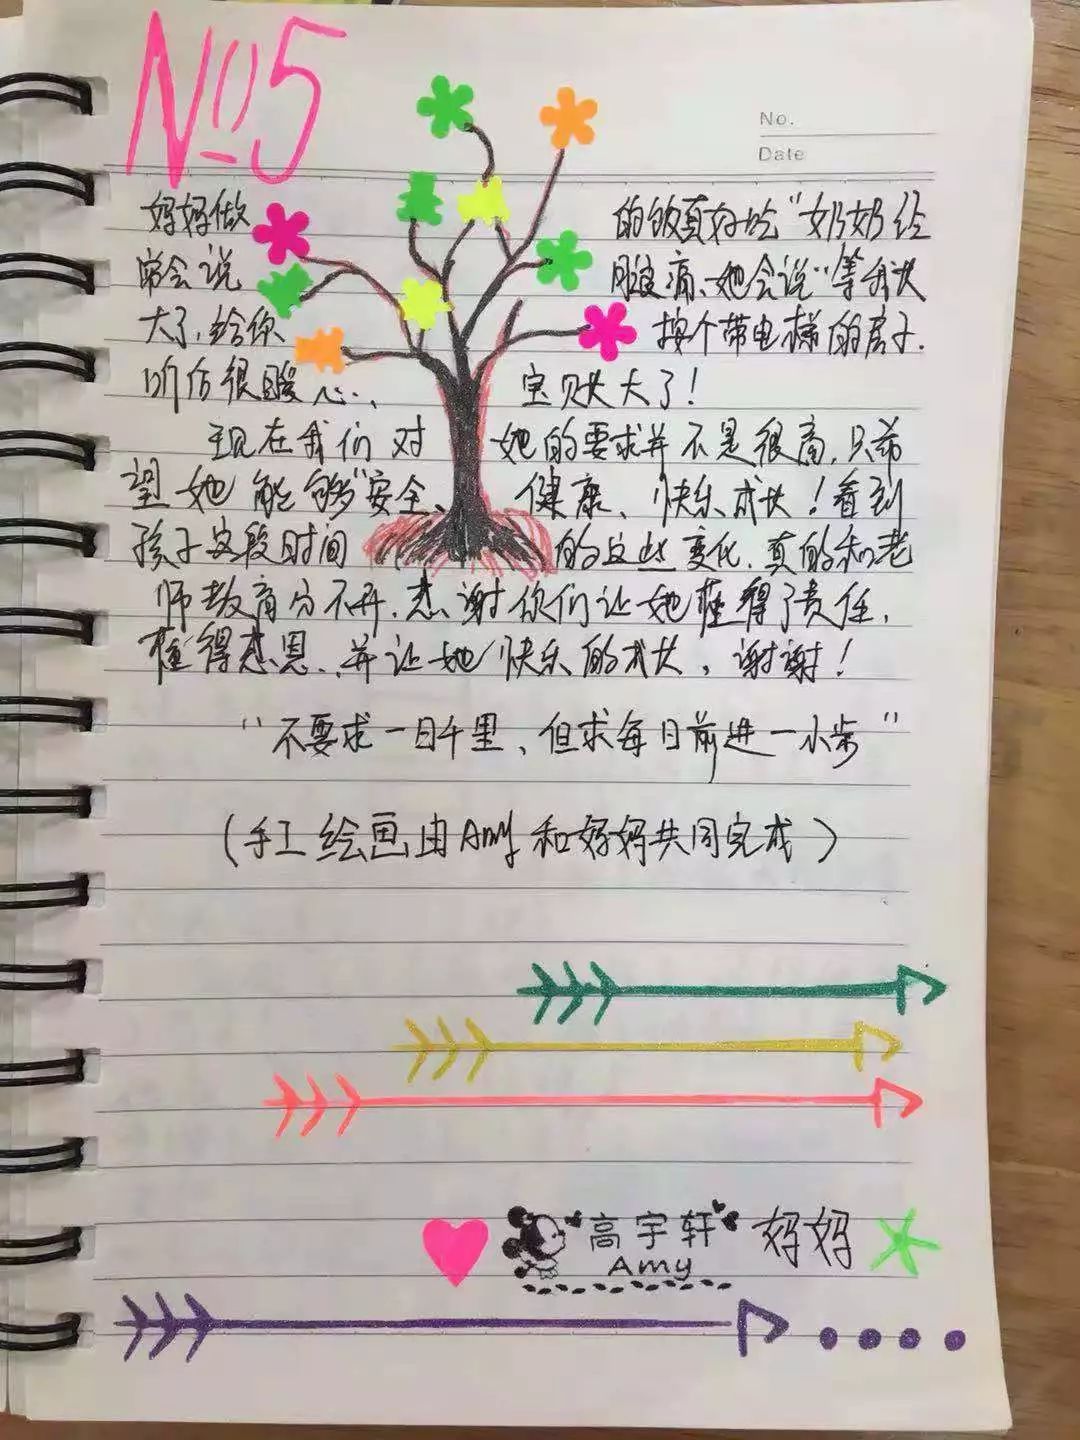 No5
No.
Date
妈妈做的饭真好吃"奶奶经
常会说腿痛、她会说"等我长
大了,给你换个带电梯的房子.
听后很暖心..、宝贝长大了!
现在我们对她的要求并不是很高,只希
望她能够"安全、健康、快乐成长!看到
孩子这段时间的这些变化,真的和老
师教育分不开.感谢你们让她懂得了责任,
懂得感恩、并让她快乐的成长,谢谢!
"不要求一日千里、但求每日前进一小步"
(手工绘画由Amy和妈妈共同完成)
高宇轩 妈妈
Amy